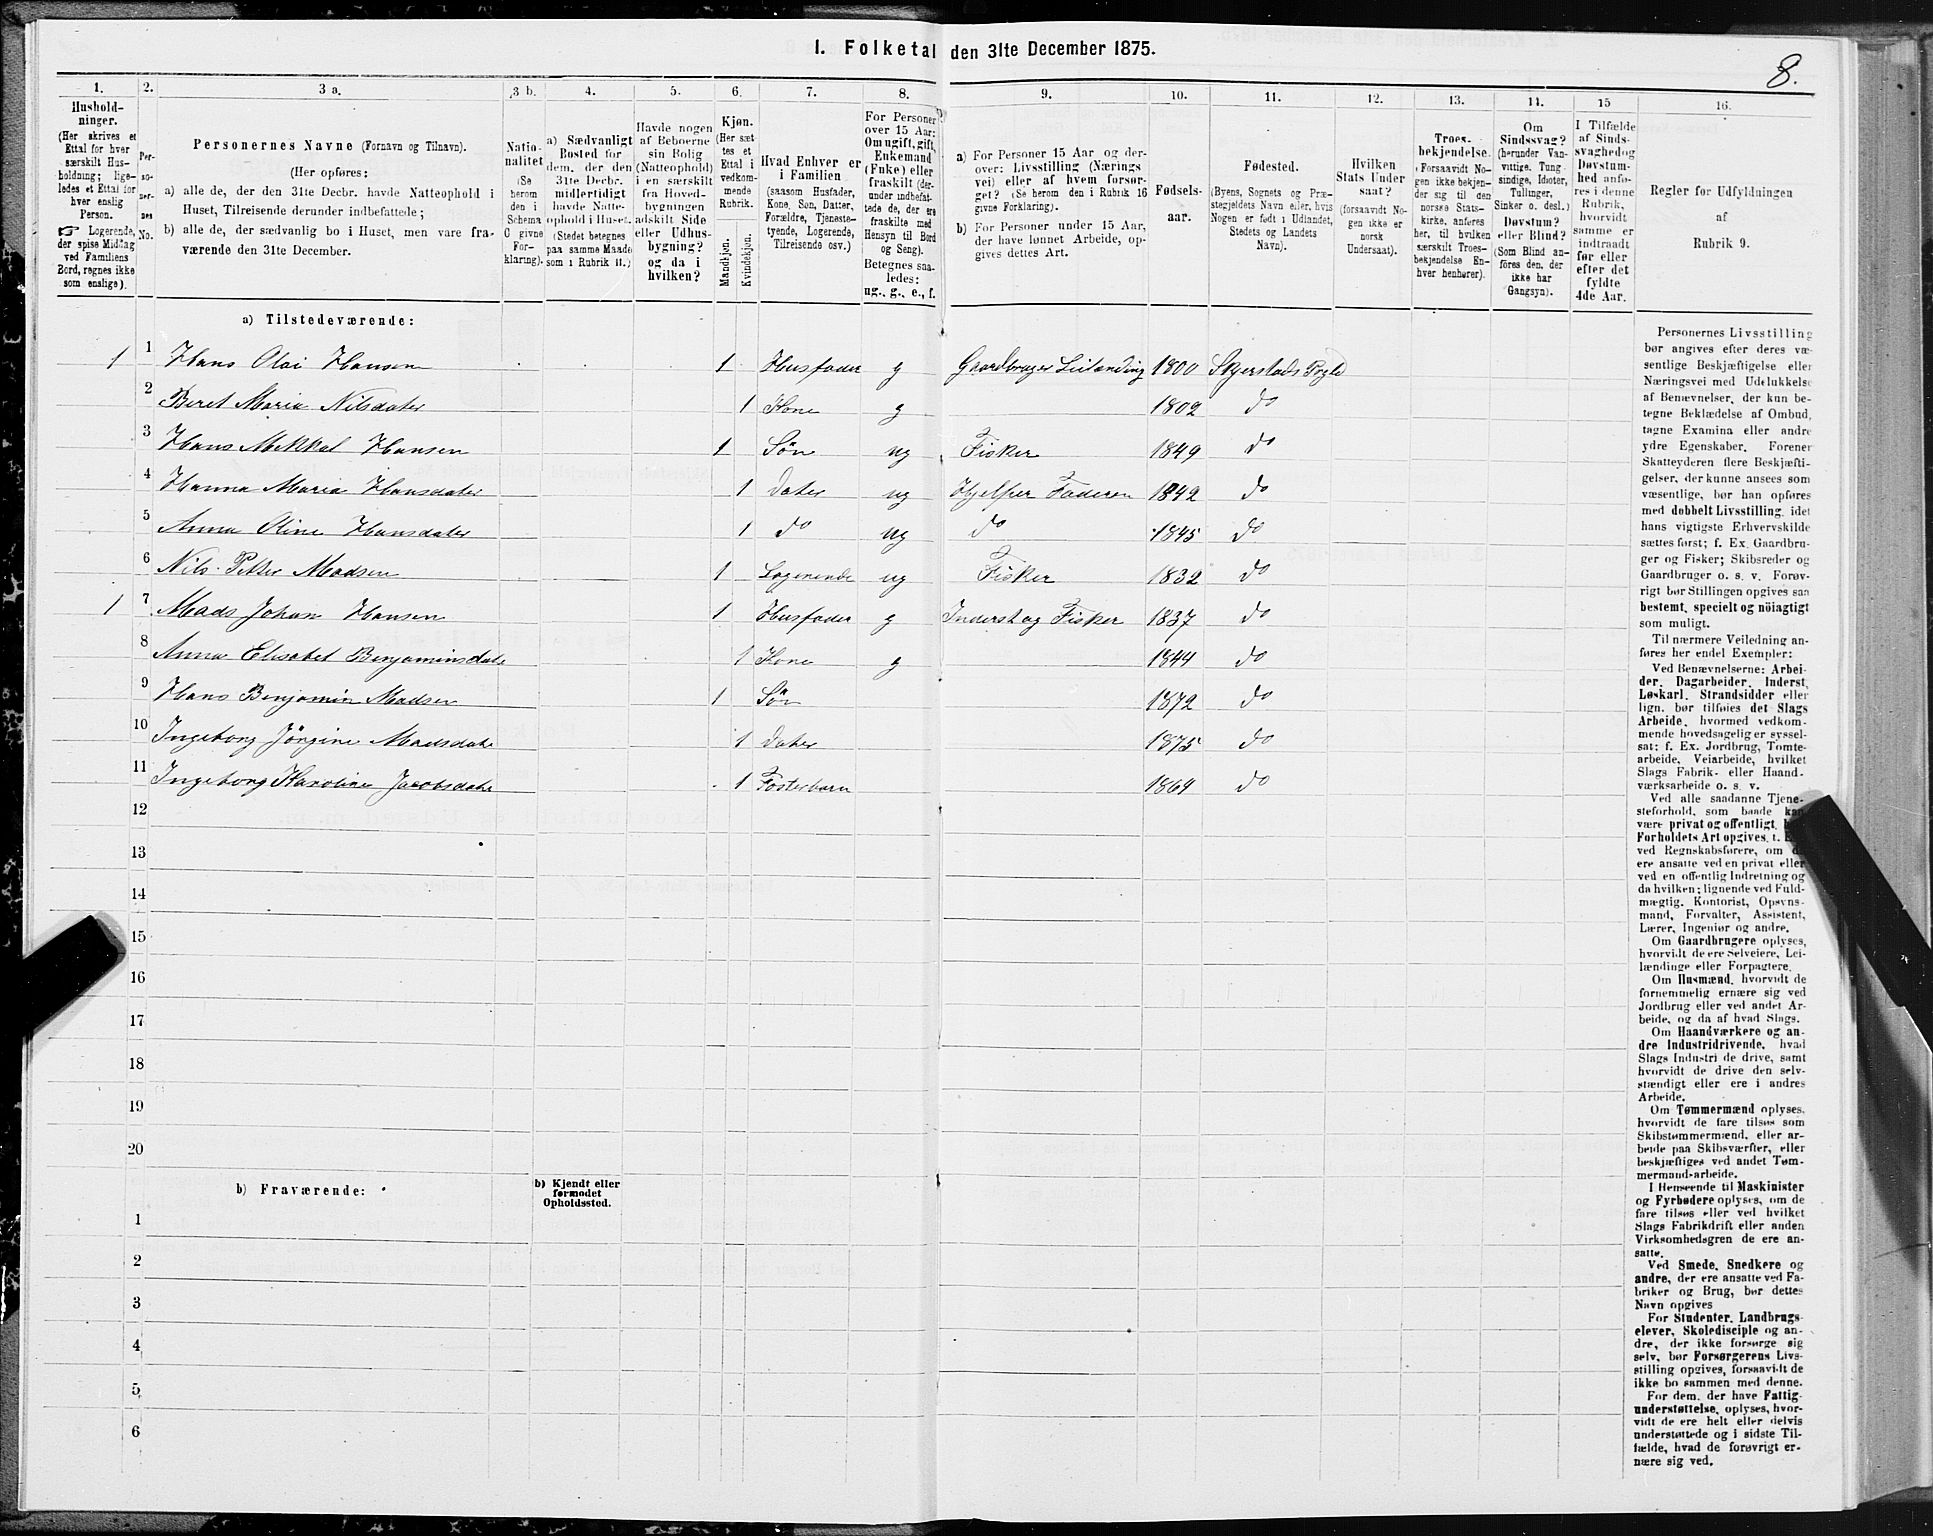 1. Folketal den 31te December 1875.
8.
1.
Hushold-
ninger.
(Her skrives et
Ettal for hver
særskilt Hus-
holdning; lige-
ledes et Ettal for
hver enslig
Person.
☞ Logerende,
der spise Middag
ved Familiens
Bord, regnes ikke
som enslige).
2.
Per-
so-
ner-
nes
No.
3 a.
Personernes Navne (Fornavn og Tilnavn).
(Her opføres:
a) alle de, der den 31te Decbr. havde Natteophold i
Huset, Tilreisende derunder indbefattede;
b) alle de, der sædvanlig bo i Huset, men vare fra-
værende den 31te December.
3 b.
Natio-
nalitet
(Se
herom
den i
Schema
C givne
For-
klaring).
4.
a) Sædvanligt
Bosted for
dem, der den
31te Decbr.
midlertidigt
havde Natte-
ophold i Huset.
(Stedet betegnes
paa samme Maade
som i Rubrik 11.)
5.
Havde nogen
af Beboerne
sin Bolig
(Natteophold)
i en særskilt
fra Hoved-
bygningen
adskilt Side
eller Udhus-
bygning?
og da i
hvilken?
6.
Kjøn.
(Her sæt
tes et
Ettal i
vedkom-
mende
Rubrik.
Mandkjøn.
Kvindekjøn.
7.
Hvad Enhver er
i Familien
(saasom Husfader,
Kone, Søn, Datter,
Forældre, Tjeneste-
tyende, Logerende,
Tilreisende osv.)
8.
For Personer
over 15 Aar:
Om ugift, gift,
Enkemand
(Enke) eller
fraskilt (der-
under indbefat-
tede de, der ere
fraskilte med
Hensyn til Bord
og Seng).
Betegnes saa-
ledes:
ug., g., e., f.
9.
a) For Personer 15 Aar og der-
over: Livsstilling (Nærings
vei) eller af hvem forsør-
get? (Se herom den i Rubrik 16
givne Forklaring).
b) For Personer under 15 Aar,
der have lønnet Arbeide, op-
gives dettes Art.
10.
Fødsels-
aar.
11.
Fødested.
(Byens, Sognets og Præ-
stegjeldets Navn eller, hvis
Nogen er født i Udlandet,
Stedets og Landets
Navn).
12.
Hvilken
Stats Under
saat?
(forsaavidt No-
gen ikke er
norsk
Undersaat).
13.
Troes-
bekjendelse.
(Forsaavidt No-
gen ikke bekjen-
der sig til den
norske Stats-
kirke, anføres
her, til hvilken
særskilt Troes-
bekjendelse En-
hver henhører).
14.
Om
Sindssvag?
(herunder Van-
vittige, Tung
sindige, Idioter,
Tullinger,
Sinker o. desl.)
Døvstum?
eller Blind?
(Som Blind an-
føres den, der
ikke har
Gangsyn).
15
I Tilfælde
af Sinds-
svaghed og
Døvstum-
hed anfø-
res i denne
Rubrik,
hvorvidt
samme er
indtraadt
før eller
efter det
fyldte
4de Aar.
16.
Regler for Udfyldningen
af
Rubrik 9.
a) Tilstedeværende:
1 1 Hans Olai Hansen 1 Husfader g Gaardbruger Leilænding 1800 Skjerstads Prgld
2 Beret Maria Nilsdater 1 Kone g 1802 do
3 Hans Mekkal Hansen 1 Søn ug Fisker 1849 do
4 Hanna Maria Hansdater 1 Dater ug Hjelper Faderen 1842 do
5 Anna Oline Hansdater 1 do ug do 1845 do
6 Nils Petter Madsen 1 Logerende ug Fisker 1832 do
1 7 Mads Johan Hansen 1 Husfader g Inderst og Fisker 1837 do
8 Anna Elisabet Benjaminsdate 1 Kone g 1844 do
9 Hans Benjamin Madsen 1 Søn 1872 do
10 Ingeborg Jörgine Madsdate 1 Dater 1875 do
11 Ingeborg Karoline Jacobsdate 1 Fosterbarn 1864 do
12
13
14
15
16
17
18
19
20
b) Fraværende:
b) Kjendt eller
formodet
Opholdssted.
1
2
3
4
5
6
Personernes Livsstilling
bør angives efter deres væ-
sentlige Beskjæftigelse eller
Næringsvei med Udelukkelse
af Benævnelser, der kun be-
tegne Beklædelse af Ombud,
tagne Examina eller andre
ydre Egenskaber. Forener
Skatteyderen flere Beskjæfti-
gelser, der kunne ansees som
væsentlige, bør han opføres
med dobbelt Livsstilling, idet
hans vigtigste Erhvervskilde
sættes først; f. Ex. Gaardbru-
ger og Fisker; Skibsreder og
Gaardbruger o. s. v. Forøv-
rigt bør Stillingen opgives saa
bestemt, specielt og nöiagtigt
som muligt.
Til nærmere Veiledning an-
føres her endel Exempler:
Ved Benævnelserne: Arbei-
der, Dagarbeider, Inderst,
Løskarl, Strandsidder eller
lign. bør tilføies det Slags
Arbeide, hvormed vedkom-
mende hovedsagelig er syssel-
sat; f. Ex. Jordbrug, Tomte-
arbeide, Veiarbeide, hvilket
Slags Fabrik- eller Haand-
værksarbeide o. s. v.
Ved alle saadanne Tjene-
steforhold, som baade kan
være privat og offentligt,
Forholdets Art opgives, t.
ved Regnskabsførere, om
ere ansatte ved en privat eller
ved en offentlig Indretning og
da hvilken; lignende ved Fuld-
mægtig, Kontorist, Opsyns-
mand, Forvalter, Assistent,
Lærer, Ingeniør og andre.
Om Gaardbrugere oplyses,
hvorvidt de ere Selveiere, Lei-
lændinge eller Forpagtere.
Om Husmænd, hvorvidt de
fornemmelig ernære sig ved
Jordbrug eller ved andet Ar-
beide, og da af hvad Slags.
Om Haandværkere og an-
dre Industridrivende, hvad
Slags Industri de drive, samt
hvorvidt de drive den selv-
stændigt eller ere i andres
Arbeide.
Om Tømmermænd oplyses,
hvorvidt de fare tilsøs som
Skibstømmermænd, eller ar-
beide paa Skibsværfter, eller
beskjæftiges ved andet Tøm-
mermandsarbeide.
I Henseende til Maskinister
og Fyrbødere oplyses, om de
fare tilsøs eller ved hvilket
Slags Fabrikdrift eller anden
Virksomhedsgren de ere an-
satte.
Ved Smede, Snedkere og
andre, der ere ansatte ved Fa-
briker og Brug, bør dettes
Navn opgives
For Studenter, Landbrugs-
elever, Skoledisciple og an-
dre, der ikke forsørge sig
selv, bør Forsørgerens Livs-
stilling opgives, forsaavidt de
ikke bo sammen med denne.
For dem, der have Fattig-
understøttelse, oplyses, hvor-
vidt de ere helt eller delvis
understøttede og i sidste Til-
fælde, hvad de forøvrigt er-
nære sig ved.